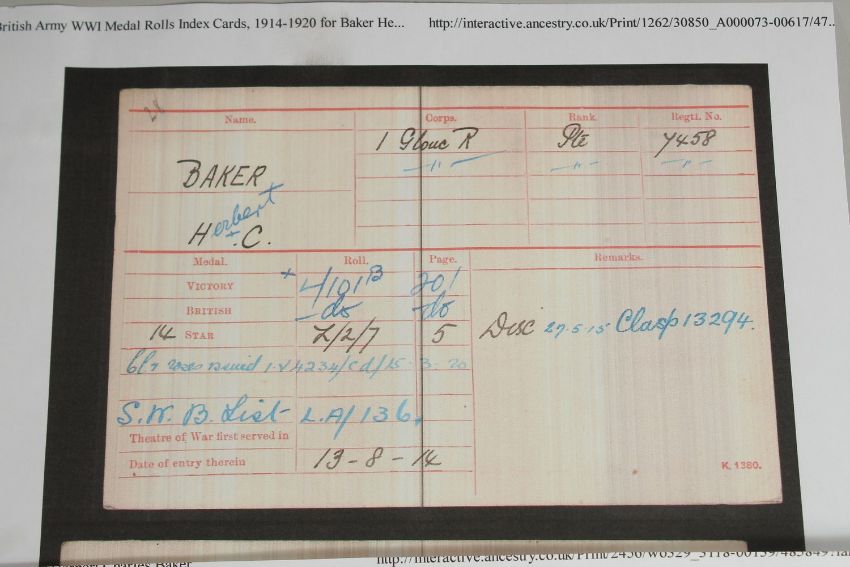 British Army WWI Medal Rolls Index Cards, 1914-1920 for Baker He... http://interactive.ancestry.co.uk/Print/1262/30850_A000073-00617/47..
Name. Corps. Rank. Regtl. No.
1 Glouc R Pte 7458
BAKER —"— —"— —"—
Herbert + C.
Medal. Roll. Page. Remarks.
VICTORY + L/101B 201
BRITISH —do do
14 STAR L/2/7 5 Disc 27.5.15 Clasp 13294.
Clp & roses issued 1.V 4234/Cd/15-3-20
S.W.B. List L.A/136.
Theatre of War first served in
Date of entry therein 13-8-14
K. 1380.
Charles Baker http://interactive.ancestry.co.uk/Print/2456/